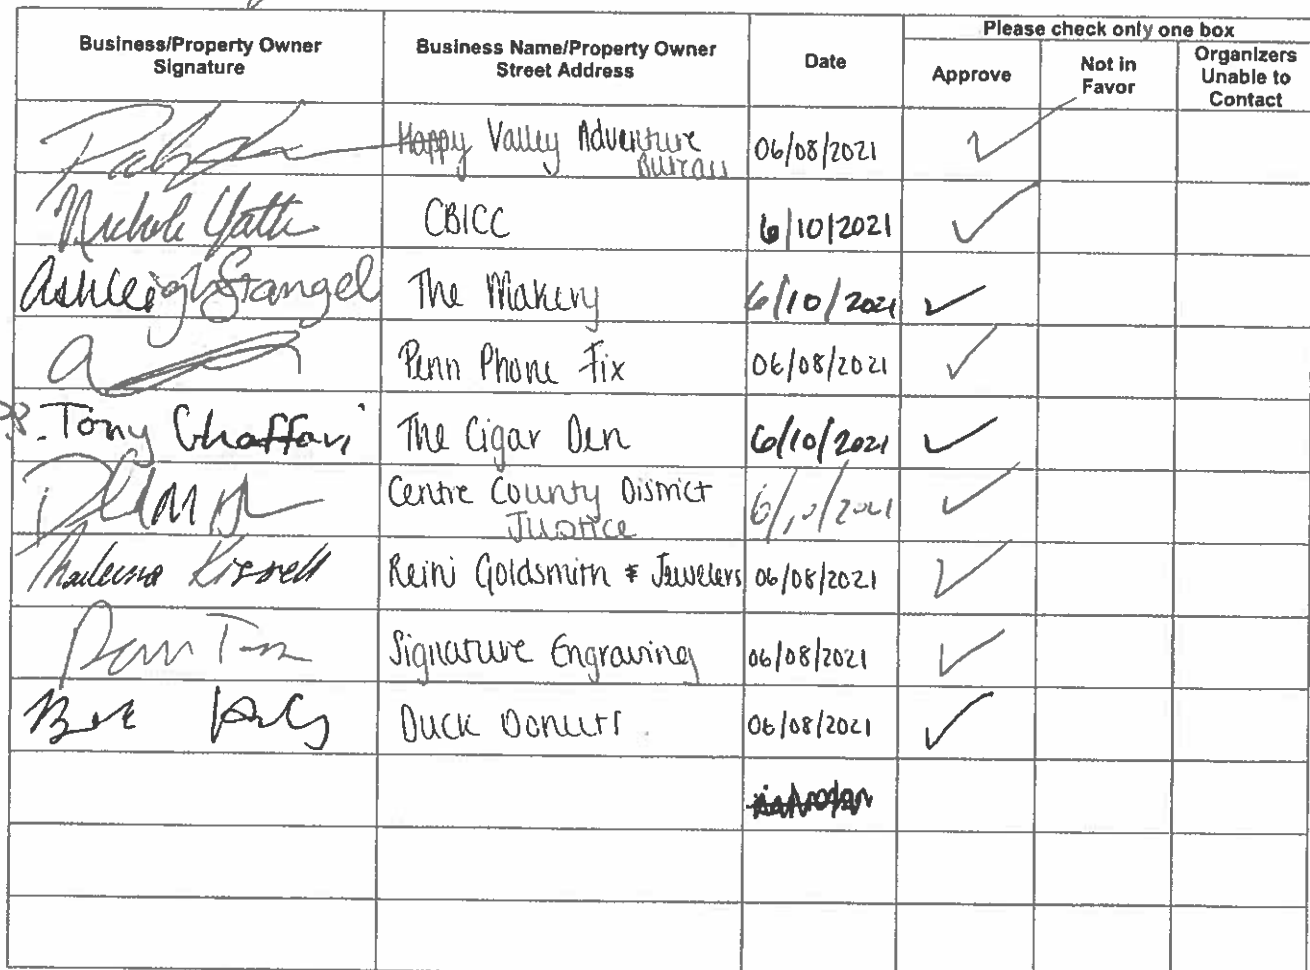 Please check only one box
Business/Property Owner
Signature
Business Name/Property Owner
Street Address
Date
Approve
Not in
Favor
Organizers
Unable to
Contact
Happy Valley Adventure
Bureau
06/08/2021
CBICC
6/10/2021
Ashleigh Stangel
The Makery
6/10/2021
Penn Phone Fix
06/08/2021
Tony Ghaffari
The Cigar Den
6/10/2021
Centre County District
Justice
6/10/2021
Kissell
Reini Goldsmith & Jewelers
06/08/2021
Signature Engraving
06/08/2021
Duck Donuts
06/08/2021